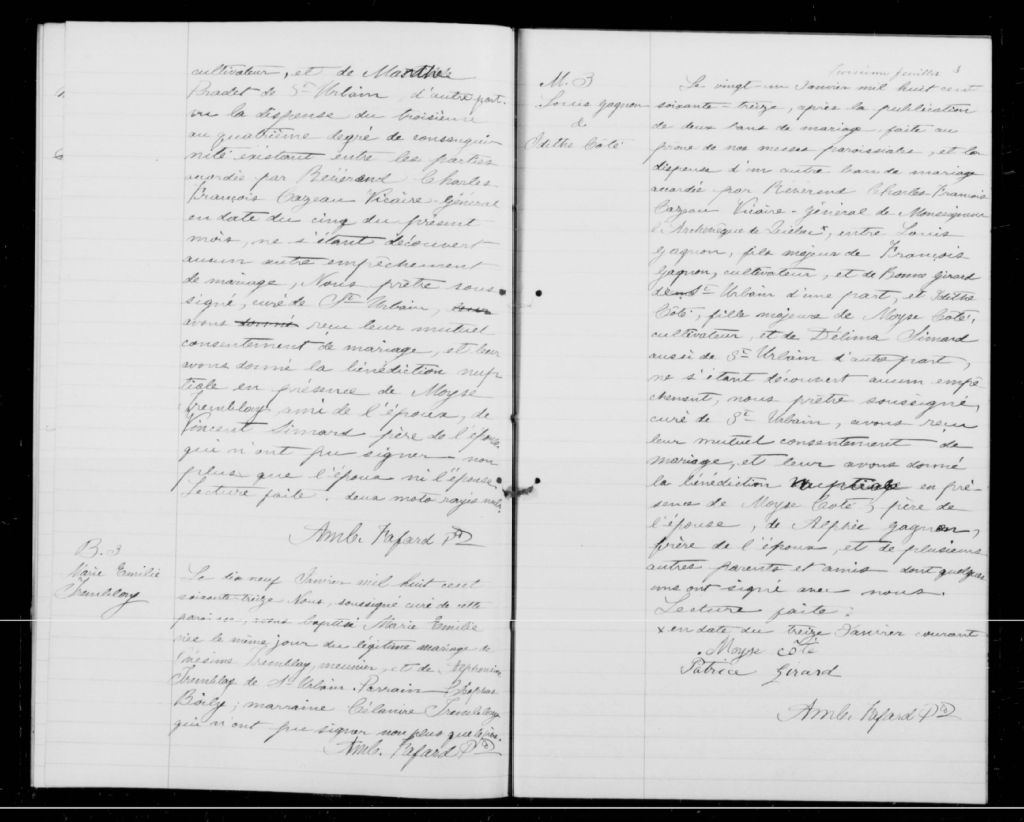 cultivateur, et de Marthe
Bradet de St Urbain, d'autre part.
vu la dispense du troisieme
au quatrième degré de consangui-
nité existant entre les parties
accordée par Révérend Charles
François Cazeau Vicaire-Général
en date du cinq du présent
mois, ne s'étant découvert
aucun autre empêchement
de mariage, Nous prêtre sous
signé, curé de St Urbain,
avons donné reçu leur mutuel
consentement de mariage, et leur
avons donné la bénédiction nup
tiale en présence de Moyse
Tremblay ami de l'époux, de
Vincent Simard père de l'épouse
qui n'ont pu signer non
plus que l'époux ni l'épouse.
Lecture faite. deux mots rayés nuls.
Amb. Fafard Ptre
B. 3
Marie Emilie
Tremblay
Le dix neuf Janvier mil huit cent
soixante-treize Nous, soussigné curé de cette
paroisse, avons baptisé Marie Emilie
née le même jour du légitime mariage de
Onésime Tremblay, meunier, et de
Tremblay de St Urbain. Parrain
Boily; marraine Célanire Tremblay
qui n'ont pu signer non plus que le père.
Amb. Fafard Ptre
troisième feuillet 3
M. 3
Louis Gagnon
&
Edithe Côté
Le vingt-un Janvier mil huit cent
soixante-treize, après la publication
de deux bans de mariage faite au
prône de nos messes paroissiales, et la
dispense d'un autre ban de mariage
accordée par Révérend Charles-François
Cazeau Vicaire-Général de Monseigneur
l'Archevêque de Québec x, entre Louis
Gagnon, fils majeur de François
Gagnon, cultivateur, et de Bonne Girard
de St Urbain d'une part, et Edithe
Côté, fille majeure de Moyse Côté,
cultivateur, et de Délima Simard
aussi de St Urbain d'autre part,
ne s'étant découvert aucun empê-
chement, nous prêtre soussigné,
curé de St Urbain, avons reçu
leur mutuel consentement de
mariage, et leur avons donné
la bénédiction nuptiale en pré-
sence de Moyse Côté, père de
l'épouse, de Alphée Gagnon,
frère de l'époux, et de plusieurs
autres parents et amis dont quelques
uns ont signé avec nous.
Lecture faite.
x en date du treize Janvier courant
Moyse Côté
Patrice Girard
Amb. Fafard Ptre